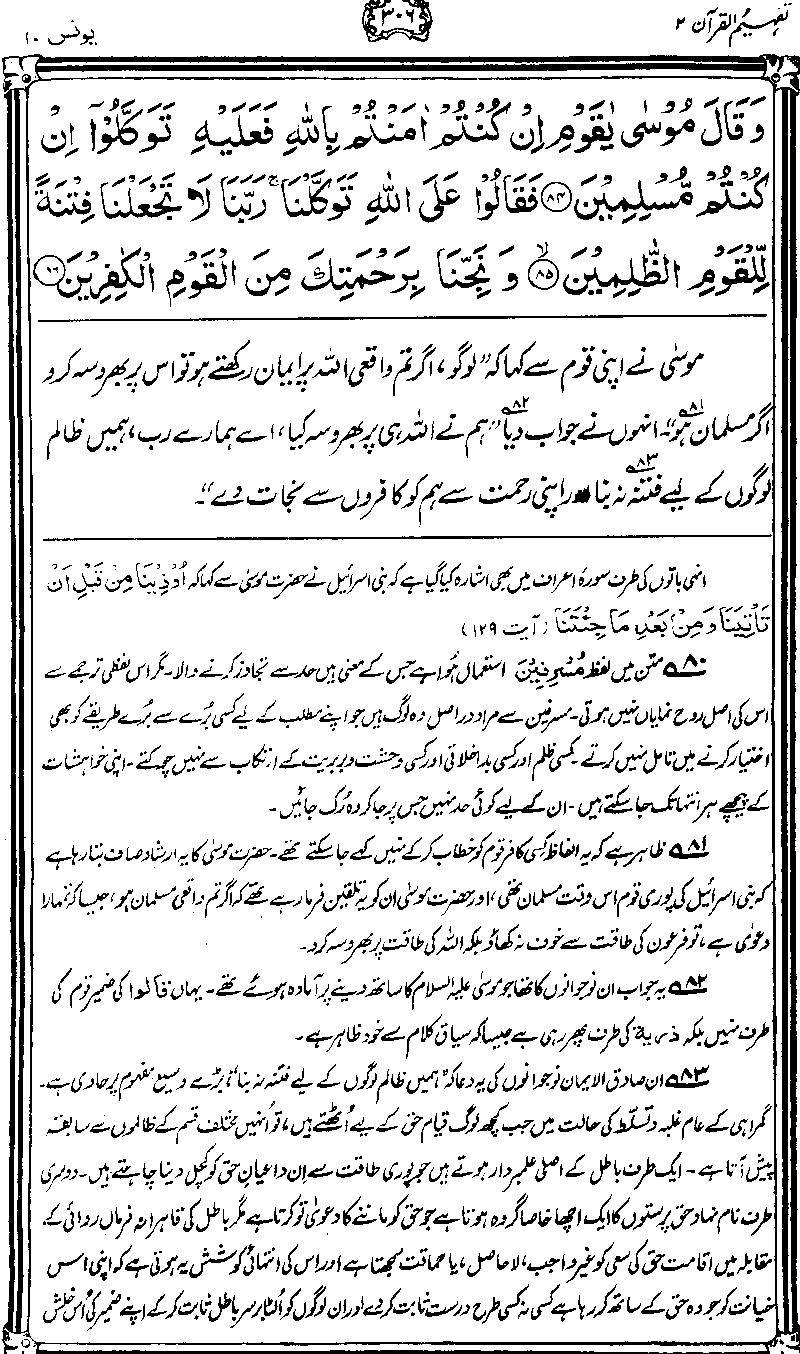 تفہیم القرآن ۲
۳۰۶
یونس ۱۰
وَقَالَ مُوْسٰى يٰقَوْمِ اِنْ كُنْتُمْ اٰمَنْتُمْ بِاللّٰهِ فَعَلَيْهِ تَوَكَّلُوْٓا اِنْ
كُنْتُمْ مُّسْلِمِيْنَ ﴿۸۴﴾ فَقَالُوْا عَلَى اللّٰهِ تَوَكَّلْنَا ۚ رَبَّنَا لَا تَجْعَلْنَا فِتْنَةً
لِّلْقَوْمِ الظّٰلِمِيْنَ ﴿۸۵﴾ وَ نَجِّنَا بِرَحْمَتِكَ مِنَ الْقَوْمِ الْكٰفِرِيْنَ ﴿۸۶﴾
موسیٰ نے اپنی قوم سے کہا کہ ”لوگو، اگر تم واقعی اللہ پر ایمان رکھتے ہو تو اس پر بھروسہ کرو
اگر مسلمان ہو۸۱“۔ انہوں نے جواب دیا۸۲ ”ہم نے اللہ ہی پر بھروسہ کیا، اے ہمارے رب، ہمیں ظالم
لوگوں کے لیے فتنہ نہ بنا۸۳ اور اپنی رحمت سے ہم کو کافروں سے نجات دے“۔
انہی باتوں کی طرف سورۂ اعراف میں بھی اشارہ کیا گیا ہے کہ بنی اسرائیل نے حضرت موسیٰ سے کہا کہ اُوْذِيْنَا مِنْ قَبْلِ اَنْ
تَأْتِيَنَا وَمِنْ بَعْدِ مَا جِئْتَنَا (آیت ۱۲۹)
۸۰ متن میں لفظ مُسْرِفِیْنَ استعمال ہُوا ہے جس کے معنی ہیں حد سے تجاوز کرنے والا۔ مگر اس لفظی ترجمے سے
اس کی اصل روح نمایاں نہیں ہوتی۔ مسرفین سے مراد دراصل وہ لوگ ہیں جو اپنے مطلب کے لیے کسی بُرے سے بُرے طریقے کو بھی
اختیار کرنے میں تامل نہیں کرتے۔ کسی ظلم اور کسی بداخلاقی اور کسی وحشت و بربریت کے ارتکاب سے نہیں چوکتے۔ اپنی خواہشات
کے پیچھے ہر انتہا تک جا سکتے ہیں۔ ان کے لیے کوئی حد نہیں جس پر جا کر وہ رُک جائیں۔
۸۱ ظاہر ہے کہ یہ الفاظ کسی کافر قوم کو خطاب کر کے نہیں کہے جا سکتے تھے۔ حضرت موسیٰ کا یہ ارشاد صاف بتا رہا ہے
کہ بنی اسرائیل کی پوری قوم اس وقت مسلمان تھی، اور حضرت موسیٰ ان کو یہ تلقین فرما رہے تھے کہ اگر تم واقعی مسلمان ہو، جیسا کہ تمہارا
دعویٰ ہے، تو فرعون کی طاقت سے خوف نہ کھاؤ بلکہ اللہ کی طاقت پر بھروسہ کرو۔
۸۲ یہ جواب ان نوجوانوں کا تھا جو موسیٰ علیہ السلام کا ساتھ دینے پر آمادہ ہوئے تھے۔ یہاں قالوا کی ضمیر قوم کی
طرف نہیں بلکہ ذریۃ کی طرف پھر رہی ہے جیسا کہ سیاق کلام سے خود ظاہر ہے۔
۸۳ ان صادق الایمان نوجوانوں کی یہ دعا کہ ”ہمیں ظالم لوگوں کے لیے فتنہ نہ بنا“، بڑے وسیع مفہوم پر حاوی ہے۔
گمراہی کے عام غلبہ و تسلّط کی حالت میں جب کچھ لوگ قیام حق کے لیے اُٹھتے ہیں، تو اُنہیں مختلف قسم کے ظالموں سے سابقہ
پیش آتا ہے۔ ایک طرف باطل کے اصلی علمبردار ہوتے ہیں جو پوری طاقت سے اِن داعیانِ حق کو کچل دینا چاہتے ہیں۔ دوسری
طرف نام نہاد حق پرستوں کا ایک اچھا خاصا گروہ ہوتا ہے جو حق کو ماننے کا دعویٰ تو کرتا ہے مگر باطل کی قاہرانہ فرماں روائی کے
مقابلہ میں اقامت حق کی سعی کو غیر واجب، لاحاصل، یا حماقت سمجھتا ہے اور اس کی انتہائی کوشش یہ ہوتی ہے کہ اپنی اس
خیانت کو جو وہ حق کے ساتھ کر رہا ہے کسی نہ کسی طرح درست ثابت کر دے اور ان لوگوں کو اُلٹا برسر باطل ثابت کر کے اپنے ضمیر کی اُس خلش